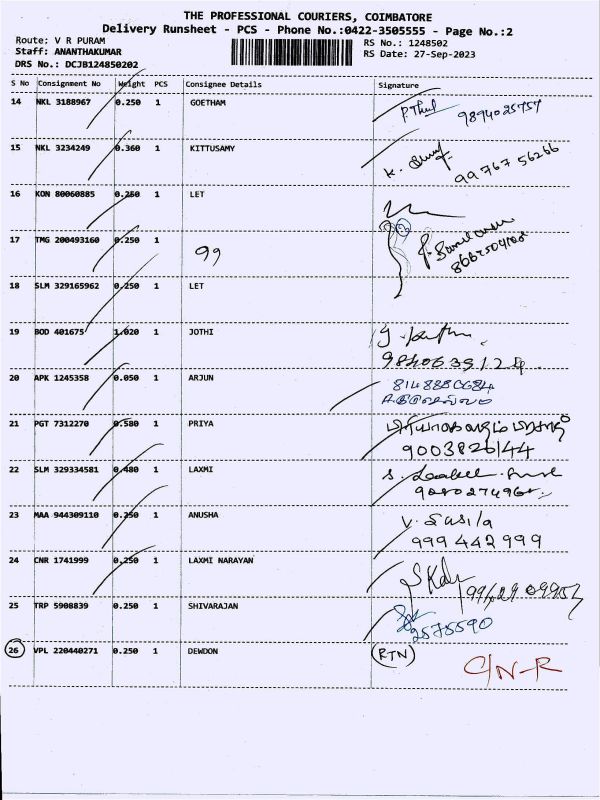 THE PROFESSIONAL COURIERS, COIMBATORE
Delivery Runsheet - PCS - Phone No.:0422-3505555 - Page No.:2
Route: V R PURAM
RS No.: 1248502
Staff: ANANTHAKUMAR
RS Date: 27-Sep-2023
DRS No.: DCJB124850202
S No Consignment No Weight PCS Consignee Details Signature
14 NKL 3188967 0.250 1 GOETHAM
9894025757
15 NKL 3234249 0.360 1 KITTUSAMY
99767 56266
16 KON 80060885 0.250 1 LET
17 TMG 200493160 0.250 1 99
18 SLM 329165962 0.250 1 LET
19 BOD 401675 1.020 1 JOTHI
20 APK 1245358 0.050 1 ARJUN
21 PGT 7312270 0.580 1 PRIYA
9003826144
22 SLM 329334581 0.480 1 LAXMI
23 MAA 944309110 0.250 1 ANUSHA
999 442 999
24 CNR 1741999 0.250 1 LAXMI NARAYAN
25 TRP 5908839 0.250 1 SHIVARAJAN
2575590
26 VPL 220440271 0.250 1 DEWDON RTN C/N-R